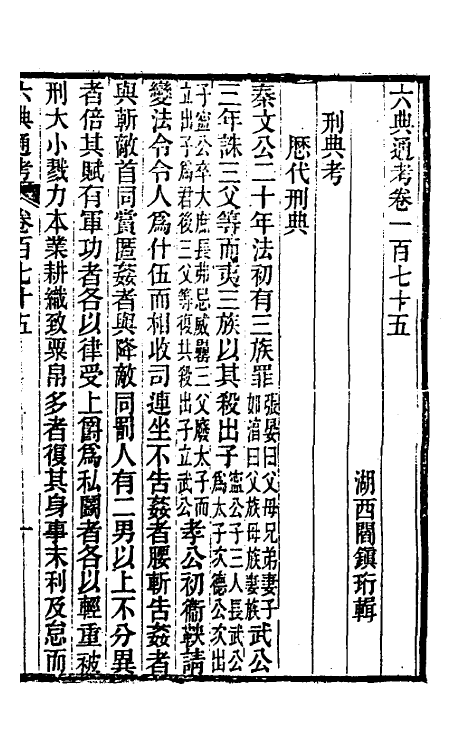 六典通考卷一百七十五
湖西閻鎮珩輯
刑典考
歷代刑典
秦文公二十年法初有三族罪張晏曰父母兄弟妻子如淳曰父族母族妻族武公
三年誅三父等而夷三族以其殺出子寧公子三人長武公為太子次德公次出
子寧公卒大庶長弗忌威壘三父廢太子而立出子為君後三父等復共殺出子立武公孝公初衞鞅請
變法令令人為什伍而相收司連坐不告姦者腰斬告姦者
與斬敵首同賞匿姦者與降敵同罰人有二男以上不分異
者倍其賦有軍功者各以律受上爵爲私鬭者各以輕重被
刑大小戮力本業耕織致粟帛多者復其身事末利及怠而
六典通考 卷百七十五 一